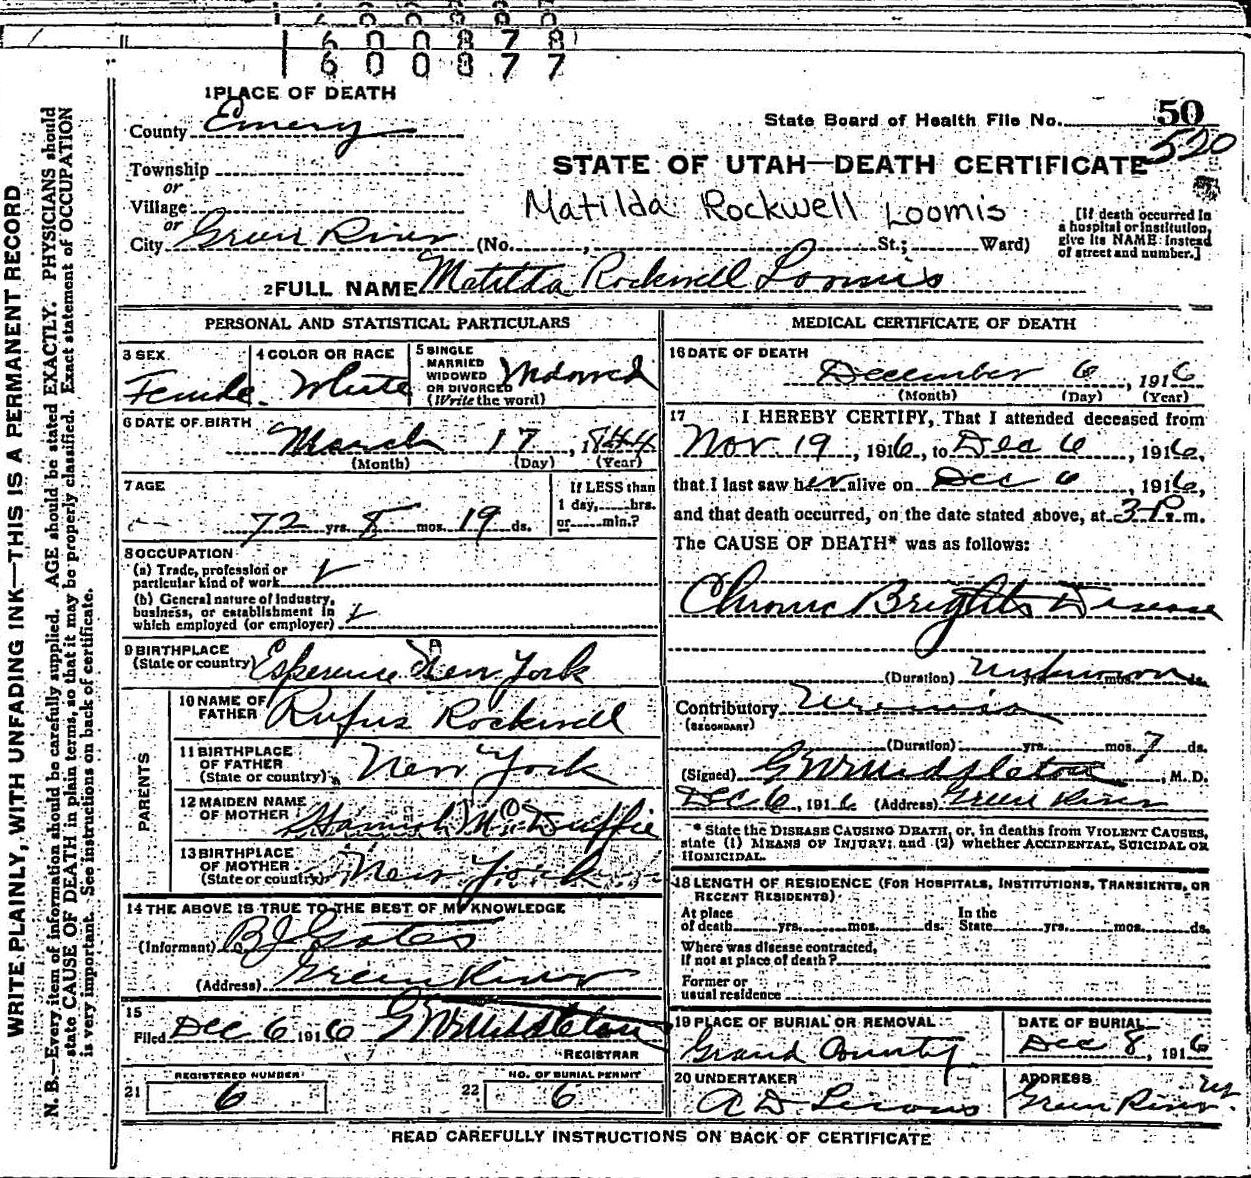 1600878
1600877
1 PLACE OF DEATH
County Emery
State Board of Health File No. 50
520
Township
or
Village
or
City Green River (No. , St.; Ward)
STATE OF UTAH—DEATH CERTIFICATE
Matilda Rockwell Loomis
[If death occurred in a hospital or institution, give its NAME instead of street and number.]
2 FULL NAME Matilda Rockwell Loomis
PERSONAL AND STATISTICAL PARTICULARS
3 SEX Female
4 COLOR OR RACE White
5 SINGLE MARRIED WIDOWED OR DIVORCED (Write the word) Widowed
6 DATE OF BIRTH
March 17, 1844
(Month) (Day) (Year)
7 AGE
72 yrs. 8 mos. 19 ds.
If LESS than 1 day, hrs. or min.?
8 OCCUPATION
(a) Trade, profession or particular kind of work
(b) General nature of Industry, business, or establishment in which employed (or employer)
9 BIRTHPLACE
(State or country) Esperence New York
PARENTS
10 NAME OF FATHER Rufus Rockwell
11 BIRTHPLACE OF FATHER (State or country) New York
12 MAIDEN NAME OF MOTHER Hannah McDuffie
13 BIRTHPLACE OF MOTHER (State or country) New York
14 THE ABOVE IS TRUE TO THE BEST OF MY KNOWLEDGE
(Informant) B J Gates
(Address) Green River
15
Filed Dec 6 1916 G W Middleton
REGISTRAR
21 REGISTERED NUMBER 6
22 NO. OF BURIAL PERMIT 6
MEDICAL CERTIFICATE OF DEATH
16 DATE OF DEATH
December 6, 1916
(Month) (Day) (Year)
17 I HEREBY CERTIFY, That I attended deceased from
Nov 19, 1916, to Dec 6, 1916,
that I last saw her alive on Dec 6, 1916,
and that death occurred, on the date stated above, at 3 P. m.
The CAUSE OF DEATH* was as follows:
Chronic Brights Disease
(Duration) Unknown yrs. mos. ds.
Contributory Uremia
(SECONDARY)
(Duration) yrs. mos. 7 ds.
(Signed) G W Middleton, M. D.
Dec 6, 1916 (Address) Green River
* State the DISEASE CAUSING DEATH, or, in deaths from VIOLENT CAUSES,
state (1) MEANS OF INJURY; and (2) whether ACCIDENTAL, SUICIDAL OR
HOMICIDAL.
18 LENGTH OF RESIDENCE (FOR HOSPITALS, INSTITUTIONS, TRANSIENTS, OR
RECENT RESIDENTS)
At place of death yrs. mos. ds. In the State yrs. mos. ds.
Where was disease contracted,
if not at place of death?
Former or
usual residence
19 PLACE OF BURIAL OR REMOVAL
Grand County
DATE OF BURIAL
Dec 8, 1916
20 UNDERTAKER
A D
ADDRESS
Green River Ut
READ CAREFULLY INSTRUCTIONS ON BACK OF CERTIFICATE
WRITE PLAINLY, WITH UNFADING INK—THIS IS A PERMANENT RECORD
N. B.—Every item of information should be carefully supplied. AGE should be stated EXACTLY. PHYSICIANS should
state CAUSE OF DEATH in plain terms, so that it may be properly classified. Exact statement of OCCUPATION
is very important. See instructions on back of certificate.